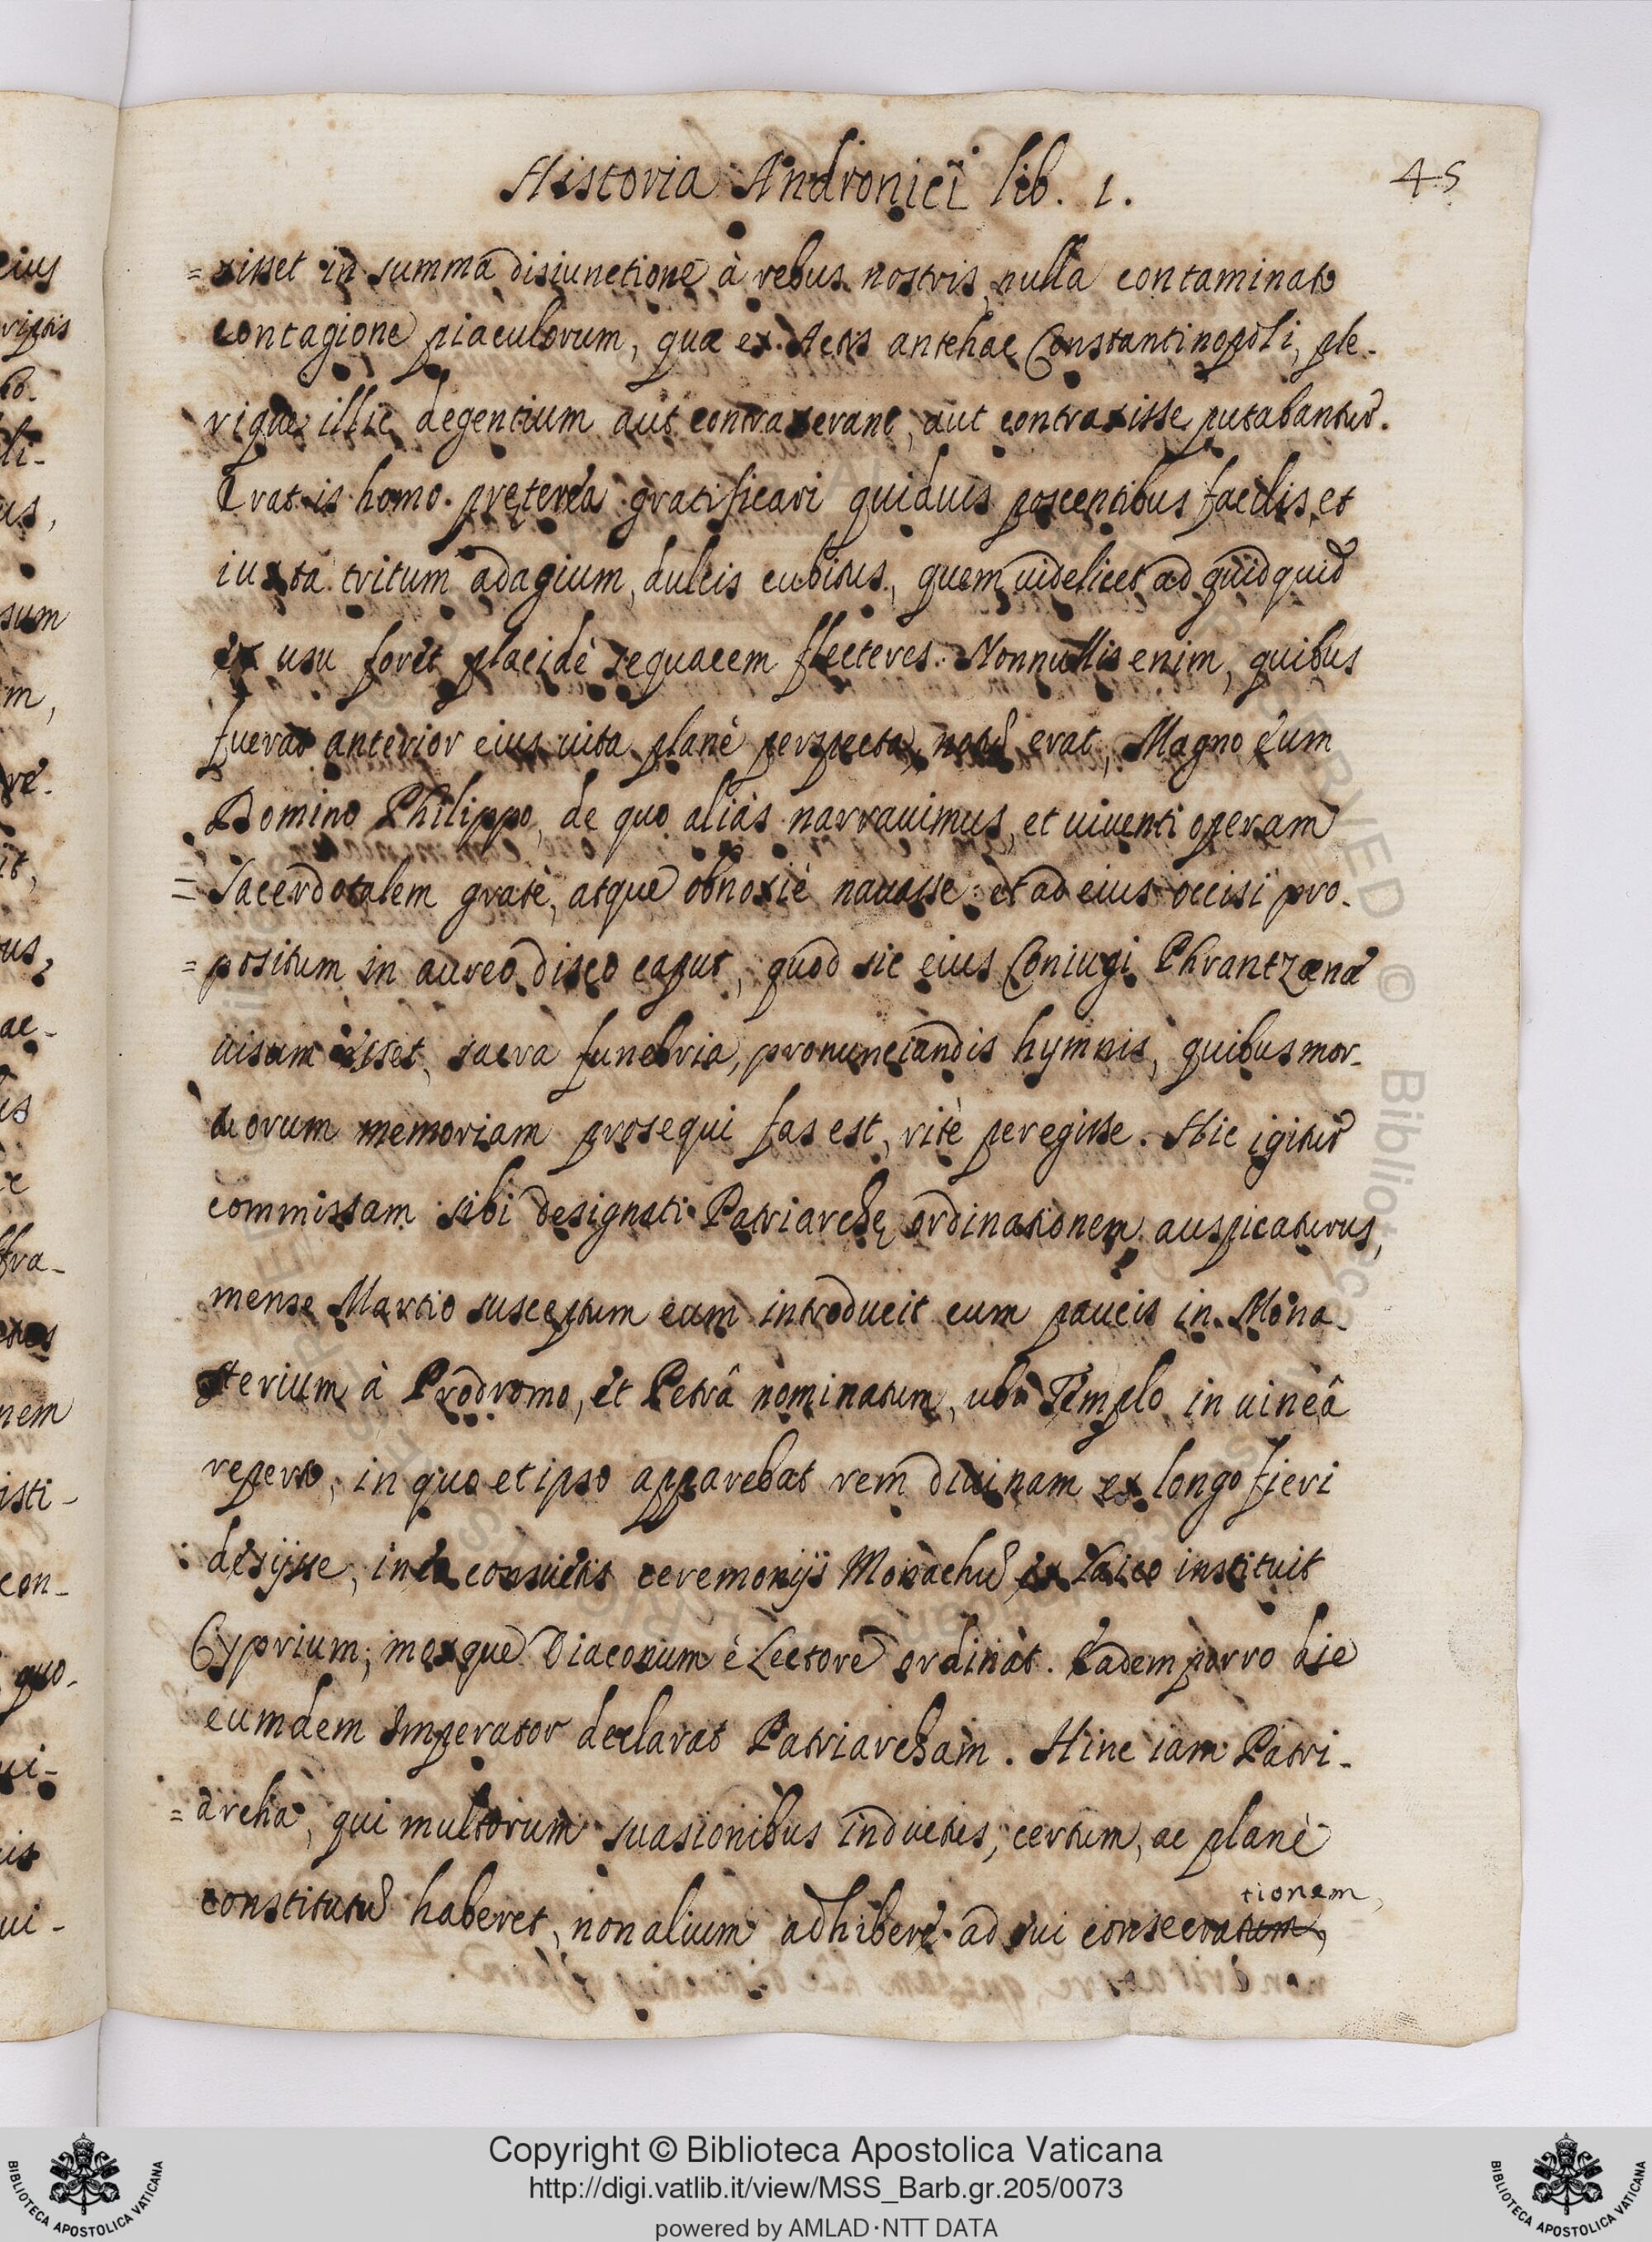 Historia Andronici lib. 1.
45
= xisset in summa disiunctione à rebus nostris, nulla contaminato
contagione piaculorum, quæ ex Actis antehac Constantinopoli, ple-
rique illic degentium aut contraxerant, aut contraxisse putabantur.
Erat is homo prętereà gratificari quiduis poscentibus facilis, et
iuxta tritum adagium, dulcis cubitus, quem uidelicet ad quidquid
ex usu foret placidè sequacem flecteres. Nonnullis enim, quibus
fuerat anterior eius uita planè perspecta, notũ erat, Magno eum
Domino Philippo, de quo aliàs narrauimus, et uiuenti operam
= Sacerdotalem gratè, atque obnoxiè nauasse: et ad eius occisi pro-
= positum in aureo disco caput, quod sic eius Coniugi Phrantzænæ
uisum esset, sacra funebria, pronunciandis hymnis, quibus mor-
tuorum memoriam prosequi fas est, ritè peregisse. Hic igitur
commissam sibi designati Patriarchę ordinationem auspicaturus,
mense Martio susceptum eum introducit cum paucis in Mona-
sterium à Prodromo, et Petrâ nominatum, ubi Templo in uineâ
reperto, in quo et ipso apparebat rem diuinam ex longo fieri
desijsse, in eo consuetis ceremonijs Monachũ ex Laico instituit
Cyprium; moxque Diaconum è Lectore ordinat. Eadem porro die
eumdem Imperator declarat Patriarcham. Hinc iam Patri-
= archa, qui multorum suasionibus inductus, certum, ac planè
constitutũ haberet, non alium adhibere ad sui consecratum,
tionem,